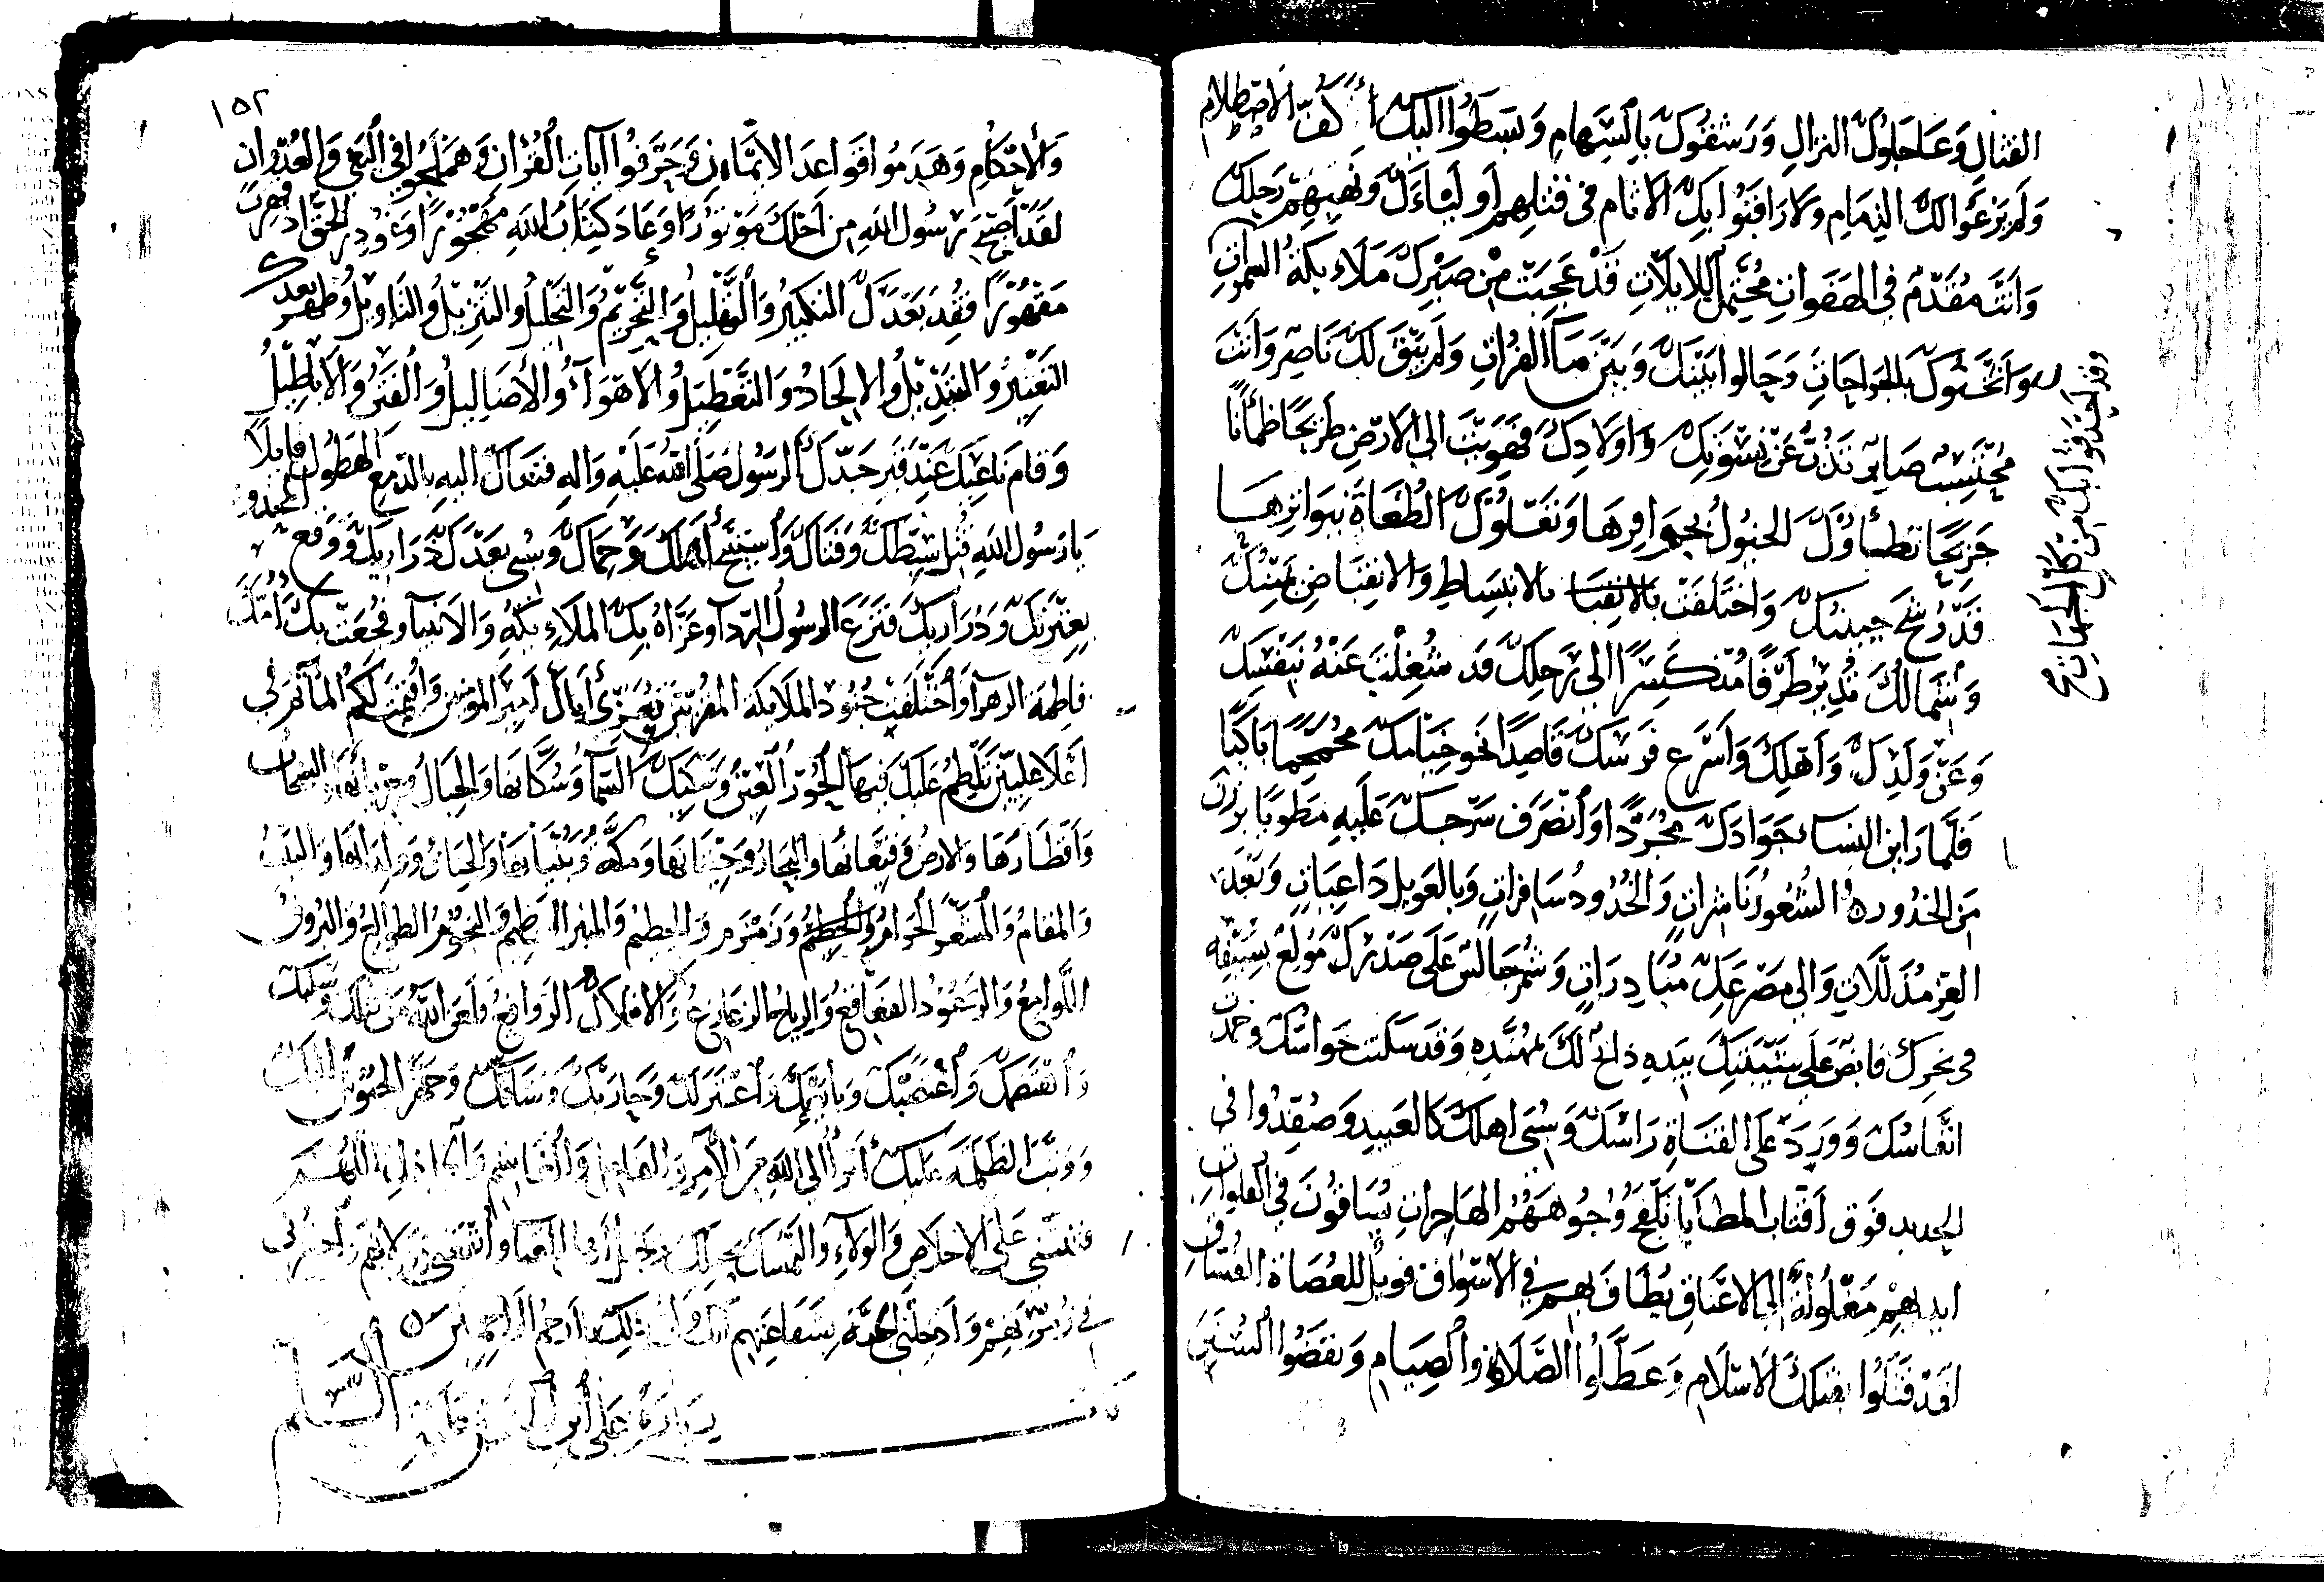 القتال وَعَاجَلُوكَ النزالِ وَرَشَقُوكَ بِالسِّهَامِ وَبَسَطُوا اليكَ أَكُفّ الاصْطِلام
وَلَم يَرْعَوا لكَ الذِمَامِ ولا رَاقبُوا بِكَ الاثام فى قتلِهِم أولياءَكَ ونَهبِهِمْ رحلكَ
وَانتَ مُقَدّمٌ فى الهَفَواتِ مُحْتَمِلُ للاذِيّاتِ قَدْ عَجِبَتْ مِنْ صَبْرِكَ مَلاءِيكَةُ السموَاتِ
وَاثْخَنُوكَ بالجَرَاحَاتِ وَحَالوا بَيْنَكَ وَبَيْنَ مَآءَ الفُرَاتِ وَلَم يَبْقَ لكَ نَاصِر وَأنتَ
وقد احْدَقُوا بكَ مِن كلّ الجِهَاتِ
مُحْتَسِبٌ صَابِر تَذُبُّ عَنْ نِسْوَتِكَ وَاَولادِكَ فَهَوَيْتَ الى الارْضِ طَرِيحًا ظمآنًا
جَرِيحًا تطأوُكَ الخيُولُ بِحَوَافِرِهَا وَتَعْلوُكَ الطُغَاةَ بِبَوَاتِرِهَا
قَدْ رُشِحَ جبينكَ وَاخْتَلَفَتْ بالانبِسَاطِ وَالانقِبَاضِ يَمِينُكَ
وَشِمَالكَ تُدِيرُ طَرْفًا مُنْكَسِرًا الى رَحلِكَ قد شُغِلْتَ عَنْهُ بنَفْسِكَ
وَعَنْ وَلَدِكَ وَأهْلِكَ وَأسْرَعَ فَرَسُكَ قَاصِدًا نحوَ خِيَامِكَ مُحَمحِمًا بَاكِيًا
فَلَمَّا رَاَينَ النسَاء جَوَادَكَ مجُرَّدًا وَانْصَرَفَ سَرْجكَ عَليهِ مَطويًا بَرَزنَ
مِنَ الخدُور الشُعُورُ نَاشِراتٍ وَالخُدُود سَافِراتٍ وَبِالعَويل دَاعِيَاتٍ وَبَعْدَ
العِزّ مُذَلّلاتٍ وَالى مَصرَعِكَ مُبَادِرَاتٍ وَشمر جَالس عَلَى صَدْرِكَ مُولِعٌ بسَيْفِهِ
فى نحرِكَ قابضٌ عَلَى شَيْبَتِكَ بيَدهِ ذابح لكَ بمُهَنَّدِه وَقَد سَكنت حَوَاسُّكَ وَخمدت
انفَاسُكَ وَوَرَدَ عَلى القَنَاةِ رَاسُكَ وَسُبِىَ اهلكَ كالعَبيدِ وَصُفِدُوا فى
الحديد فَوق اقتَاب المطايَا تَلْفَحُ وُجُوهَهُمْ الهَاجِراتِ يُسَاقُونَ في الفَلَوات
ايديهِمْ مَغْلُولَةٌ الى الاعْنَاقِ يُطَافُ بِهِم فى الاسْوَاقِ فويلٌ للعُصَاة الفُسّاق
لقد قَتَلُوا بقتلِكَ الاسْلام وَعَطَّلُوا الصَّلَاة والصِيَام وَنقضُوا السُنَن
١٥٢
وَالاحْكَامِ وَهَدَمُوا قوَاعِدَ الايمَانِ وَحَرَّفُوا آيات القُرْآن وَهَمْلجُوا فى البَغْىِ وَالعُدْوان
لقَدْ أصْبَحَ رَسُول اللهِ من أجلكَ مَوتوُرًا وَعَادَ كِتَابُ اللهِ مَهْجُورًا وَغُودِرَ الحقّ اذ قُهِرت
مَقْهُورًا فَقُدِ بَعْدَكَ التكبيرُ وَالتَّهْلِيلُ وَالتَّحْرِيمُ وَالتَحْلِيلُ وَالتَنْزِيلُ وَالتَاوِيلُ وَظهَر بعدكَ
التَغْيِيرُ وَالتَبْدِيلُ وَالالحَادُ وَالتَّعْطِيلُ وَالاهْوَآءُ وَالأضَالِيلُ وَالفِتَنُ وَالأبَاطِيلُ
وَقامَ نَاعِيكَ عِنْدَ قَبرِ جَدِّكَ الرسُول صَلَّى اللهُ عَلَيْهِ وَالهِ فنعَاكَ اليهِ بالدَّمعِ الهَطُول قايلاً
يَا رَسُولَ اللهِ قُتِلَ سِبْطُكَ وَفتَاكَ وَأُسْتُبِيحَ أهْلُكَ وَحِمَاكَ وَسُبى بَعْدَكَ ذَرَارِيكَ وَوَقعَ المحذور
بِعِتْرَتِكَ وَذَرَارِيكَ فنزَعَ الرسُولُ الرِدآ وَعَزَّاهُ بِكَ المَلاءِيكةُ وَالانبيآء وَفُجِعَتْ بِكَ اُمُّكَ
فاطِمَة الزهرآ وَأخْتَلَفَتْ جُنُود الملائكَة المقرّبين تُعَزّى أبَاكَ أمِيرَ المؤمنين وَأقيمَت لكُمُ المأتَم فى
أعْلا عليّينَ تَلْطِمُ عَلَيكَ فيهَا الحُورُ العِينُ وَبَكَتكَ السَّمآءُ وَسُكَّانهَا وَالجِبَالُ وخزانهَا
وَأقطَارهَا وَالارضُ وقيعَانهَا وَالبِحَارُ وَحِيتَانهَا وَمَكَّةُ وَبُنْيَانهَا وَالجنَانُ وَولدَانُهَا وَالبَيْتُ
وَالمقامُ وَالمشْعَرُ الحَرَامُ وَالحَطِيمُ وَزَمْزَم وَالمنبر العَظِيمُ وَالنجُومُ الطوالِعُ وَالبرُوقُ
اللَّوامِعُ وَالرعُودُ القعَاقعُ وَالرِياحُ الزعَازِعُ وَالافلاكُ الروَافِعُ وَلعَنَ اللهُ مَن قتلكَ وسَلبكَ
وَاهْتَضَمكَ وَغَصَبكَ وَبَايَعَكَ وَاعْتزَلكَ وَحَارَبَكَ وَسَاقَكَ وَجَهَّز الجيُوش اليكَ
وَوَثَّبَ الظَلَمَة عَليكَ أبرَأُ الى اللهِ مِنَ الآمِرِ وَالفاعِل وَالغَاشِم وَالخاذِل اللهُمّ
فثبّتنى عَلَى الاخلاصِ وَالولآءِ وَالتَمَسُّكَ بحَبْل أهل العبا وَانْفَعنى بمودّتهم وَاحْشُرنى
فى زُمْرَتِهِمْ وَأدخِلنى الجنّة بشَفَاعَتِهِم انّكَ وَلىّ ذلِكَ يا أرحَم الرَاحِمِينَ